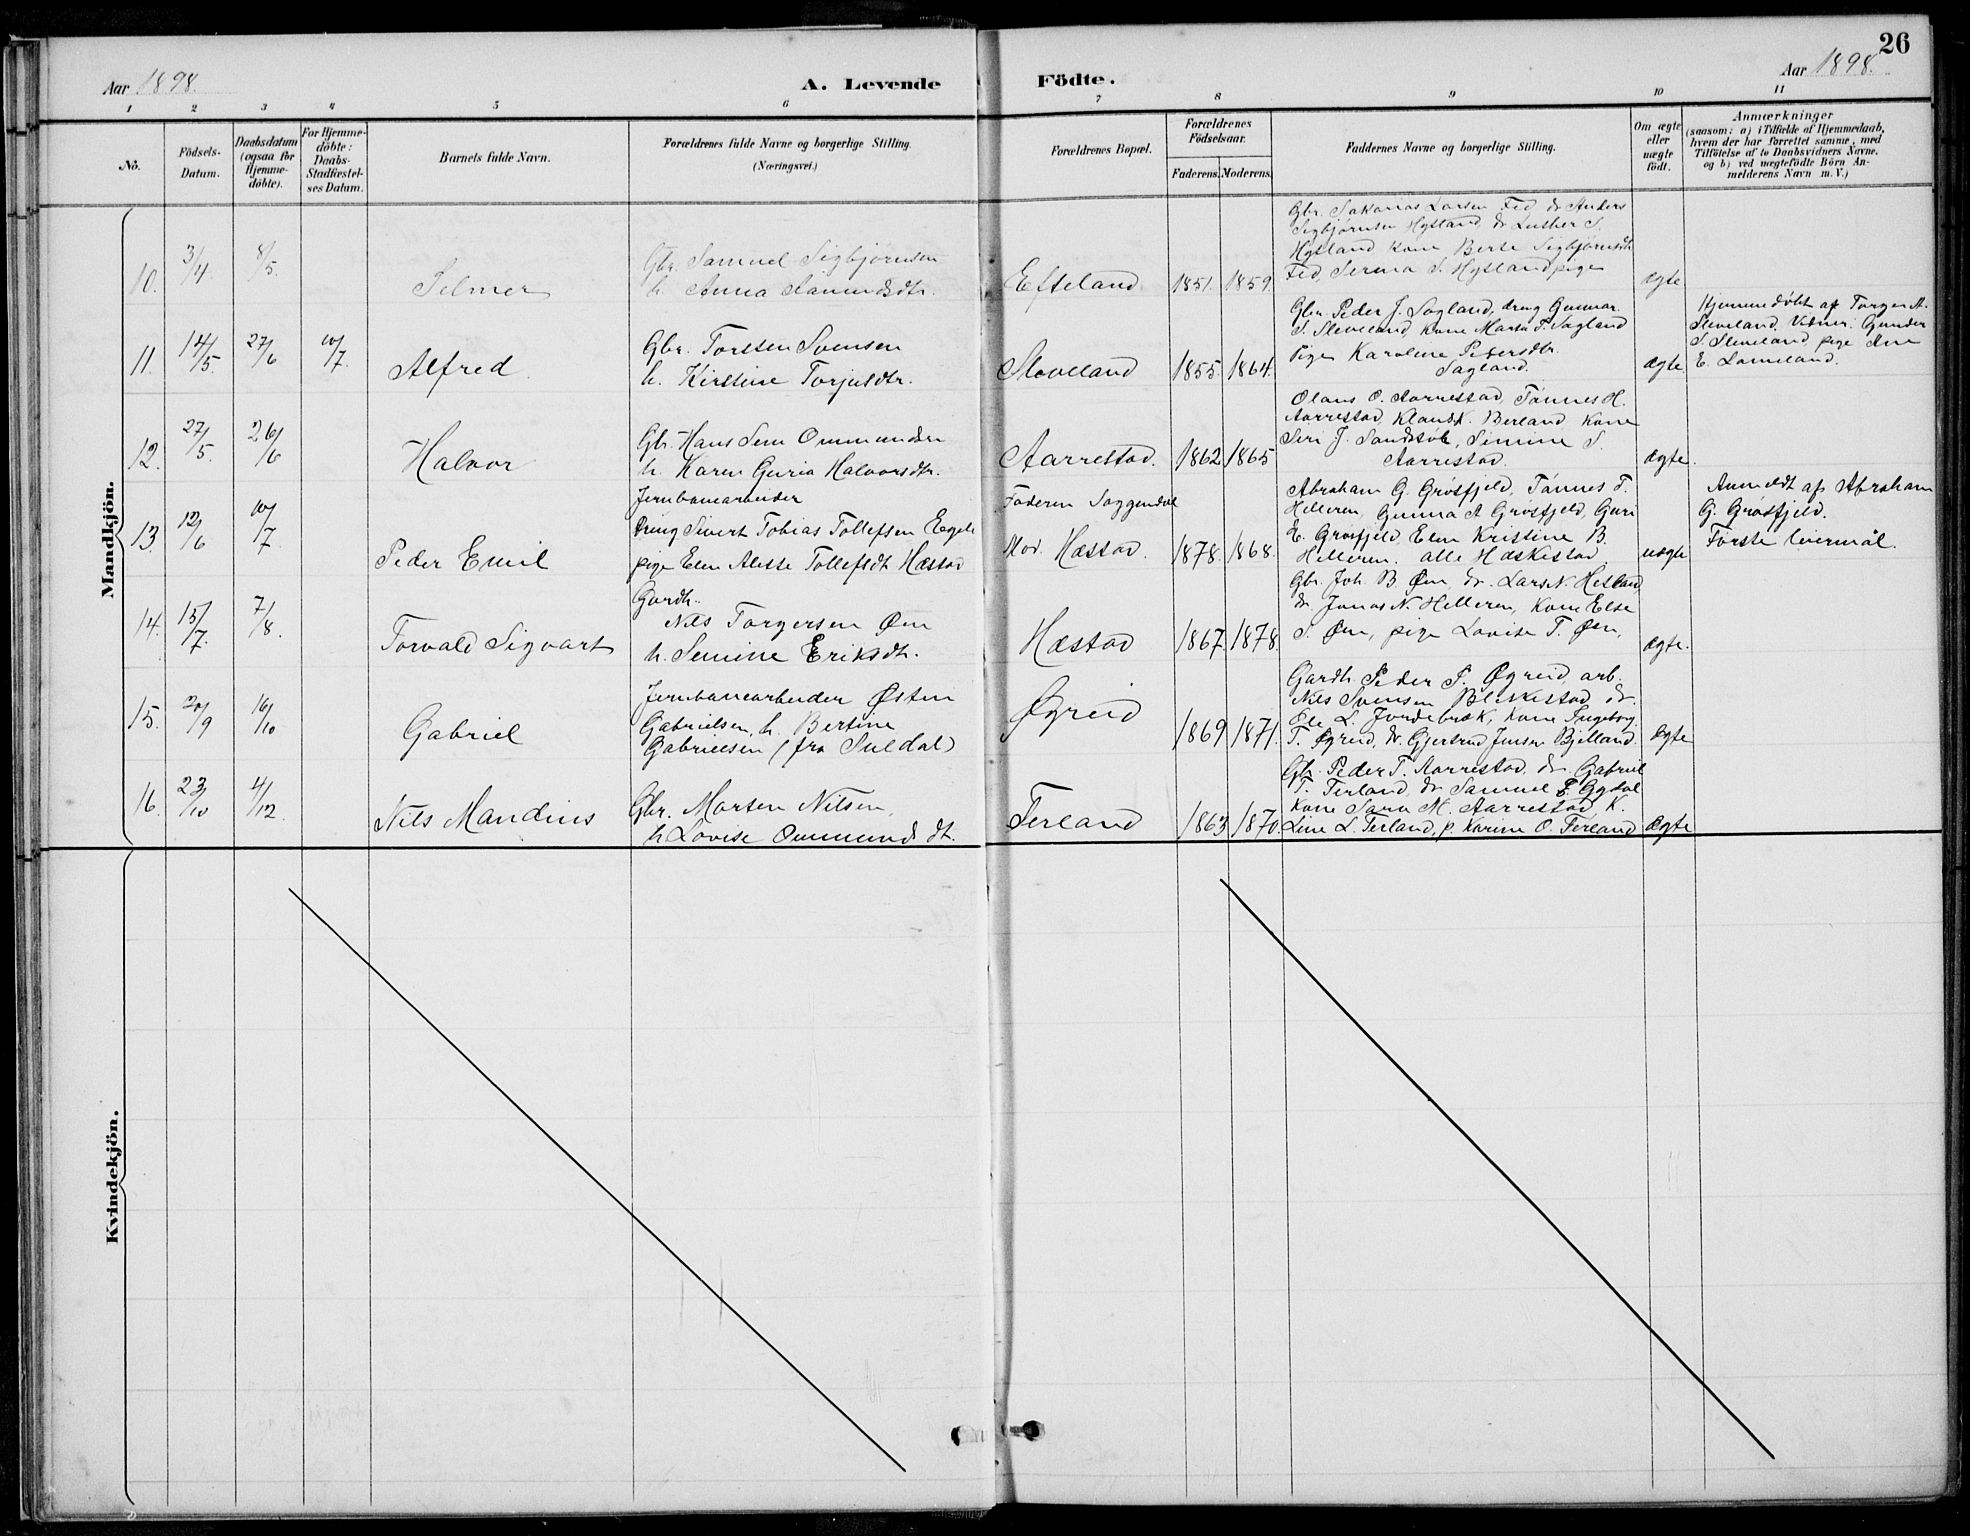 26
Aar 1898.
A. Levende Födte.
Aar 1898.
1 2 3 4 5 6 7 8 9 10 11
No.
Födsels-Datum.
Daabsdatum (ogsaa for Hjemme-döbte).
For Hjemme-döbte: Daabs-Stadfæstel-ses Datum.
Barnets fulde Navn.
Forældrenes fulde Navne og borgerlige Stilling.
(Næringsvei.)
Forældrenes Bopæl.
Forældrenes Födselsaar.
Faderens. Moderens.
Faddernes Navne og borgerlige Stilling.
Om ægte eller uægte födt.
Anmærkninger
(saasom: a) i Tilfælde af Hjemmedaab,
hvem der har forrettet samme, med
Tilföielse af to Daabsvidners Navne,
og b) ved uægtefödte Börn An-
melderens Navn m. V.)
Mandkjön.
10. 3/4. 8/5. Selmer
Gbr. Samuel Sigbjørnsen
h. Anna Aamundsdtr.
Efteland 1851. 1859.
Gbr. Sakarias Larsen Fed dr Anders
Sigbjørnsen Hylland, dr Luther S.
Hylland kone Berte Sigbjørnsdt
Fed, Serina S. Hylland pige
ægte
11. 14/5. 27/6 10/7. Alfred
Gbr. Torsten Svensen
h. Kirstine Torjusdtr.
Sleveland 1855. 1864.
Gbr. Peder J. Sagland, dreng Gunnar
S. Sleveland, kone Marta T. Sagland
Pige Karoline Pedersdtr.
Sagland.
ægte
Hjemmedøbt af Torger A.
Sleveland. Vidner: Gunder
S. Sleveland, pige Ane
E. Lomeland.
12. 27/5. 26/6 Halvor
Gbr. Hans Sem Ommundsen
h. Karen Guria Halvorsdtr.
Aarrestad. 1862 1865
Olaus O. Aarrestad, Tønnes H.
Aarrestad, Klaus K. Berland Kone
Seri J. Sandstøl, Simine S.
Aarrestad.
ægte.
13. 12/6 10/7. Peder Emil
Jernbanearbeider
Dreng Sivert Tobias Tollefsen Egeli
pige Elen Alette Tollefsdt Hæstad
Faderen Soggendal
Mod. Hæstad. 1878. 1868.
Abraham G. Grøsfjeld, Tønnes T.
Helleren, Gunna A Grøsfjeld, Guri
E. Grøsfjeld, Elen Kristine B.
Helleren. alle Hæskestad
uægte
Anmeldt af Abraham
G. Grøsfjeld.
Første leiermål.
14. 15/7. 7/8. Torvald Sigvart
Gardb.
Nils Torgersen Øen
h. Semine Eriksdtr.
Hæstad 1867. 1878.
Gbr. Joh. B. Øen dr. Lars N. Hetland
dr. Jonas N. Helleren, Kone Else
S. Øen, pige Lovise T. Øen,
ægte.
15. 20/9 16/10 Gabriel
Jernbanearbeider Østen
Gabrielsen, h. Bertine
Gabrielsen (fra Suldal)
Øgreid 1869 1871.
Gardb. Peder P. Øgreid, arb.
Nils Svensen Bliksestad, dr.
Ole L. Jordebræk, Kone Ingeborg
T. Øgreid, dr. Gjertrud Jensen Bjelland.
ægte
16. 23/10 4/12. Nils Mandius
Gbr. Morten Nilsen
h. Lovise Ommundsdt.
Terland 1863 1870.
Gbr. Peder T. Aarrestad dr Gabriel
T. Terland, dr Samuel E. Gydal
Kone Sara M. Aarrestad K.
Line L. Terland, p. Karine O. Terland
ægte
Kvindekjön.